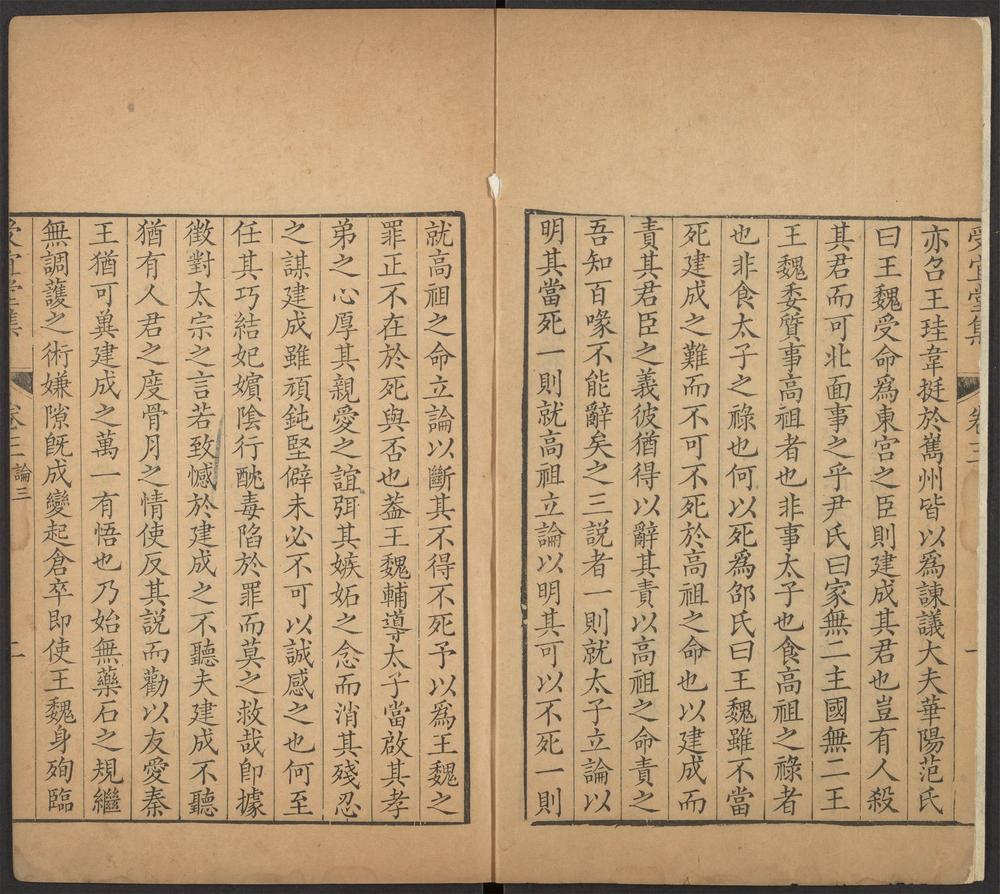 受宜堂集 卷三 一
亦召王珪韋挺於嶲州皆以爲諫議大夫華陽范氏
曰王魏受命爲東宮之臣則建成其君也豈有人殺
其君而可北面事之乎尹氏曰家無二主國無二王
王魏委質事高祖者也非事太子也食高祖之祿者
也非食太子之祿也何以死爲邵氏曰王魏雖不當
死建成之難而不可不死於高祖之命也以建成而
責其君臣之義彼猶得以辭其責以高祖之命責之
吾知百喙不能辭矣之三説者一則就太子立論以
明其當死一則就高祖立論以明其可以不死一則
就高祖之命立論以斷其不得不死予以爲王魏之
罪正不在於死與否也葢王魏輔導太子當啟其孝
弟之心厚其親愛之誼弭其嫉妬之念而消其殘忍
之謀建成雖頑鈍堅僻未必不可以誠感之也何至
任其巧結妃嬪陰行酖毒陷於罪而莫之救哉卽據
徵對太宗之言若致憾於建成之不聽夫建成不聽
猶有人君之度骨月之情使反其説而勸以友愛秦
王猶可兾建成之萬一有悟也乃始無藥石之規繼
無調䕶之術嫌隙旣成變起倉卒即使王魏身殉臨
受宜堂集 卷三 論三 二